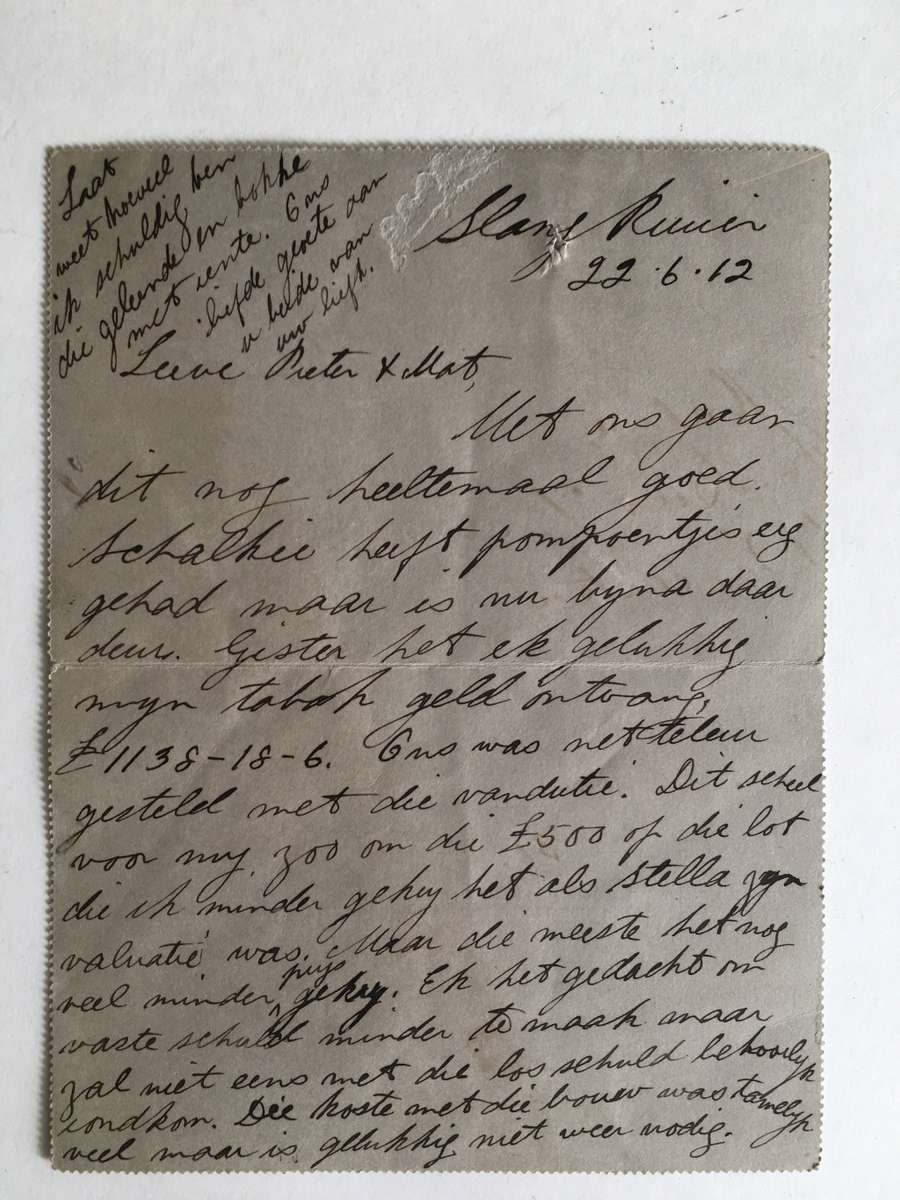 Laat
weet hoeveel
ik schuldig ben
die geleende en bokke
met rente. Ons
liefde groete aan
u beide van
uw liefh.
Slang Rivier
22.6.12
Lieve Pieter & Mat,
Met ons gaan
dit nog heeltemaal goed.
Schalkie heeft pompoentjis erg
gehad maar is nu byna daar
deur. Gister het ek gelukkig
myn tabak geld ontvang,
£1138-18-6. Ons was net teleur
gesteld met die vandutie. Dit scheel
voor my zoo om die £500 op die lot
die ik minder gekry het als Stella zyn
valuatie was. Maar die meeste het nog
veel minder prys gekry. Ek het gedacht om
vaste schuld minder te maak maar
zal niet eens met die los schuld behoorlyk
rondkom. Die koste met die bouw was tamelyk
veel maar is gelukkig niet weer nodig.